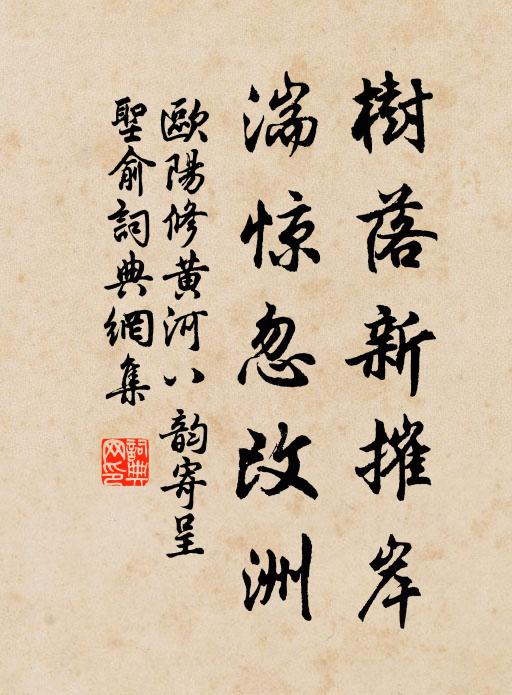 樹落新摧岸
湍惊忽改洲
歐陽修黄河八韵寄呈
聖俞詞典網集
詞典网印